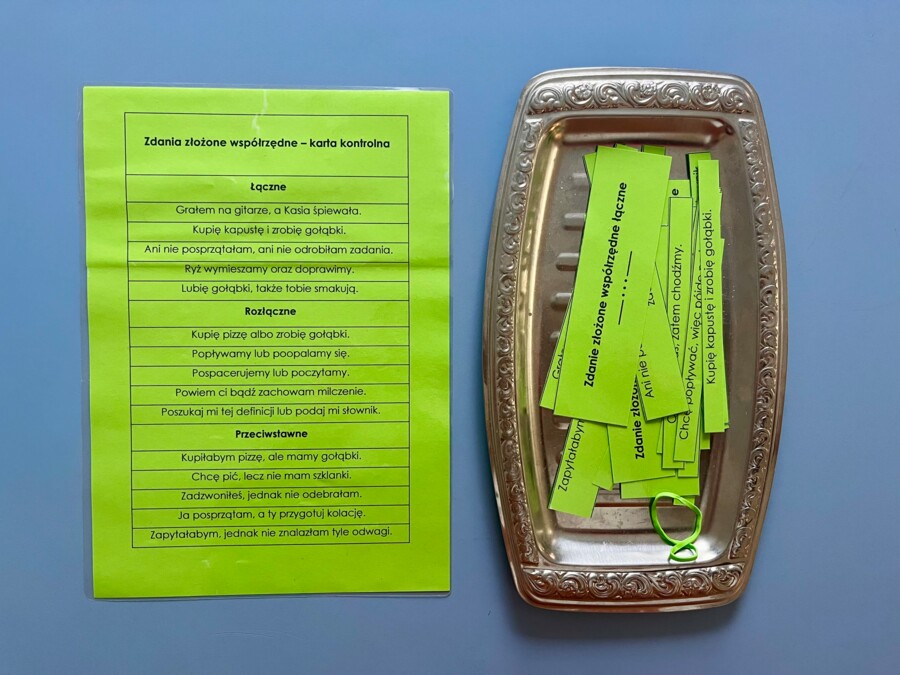 Zdania złożone współrzędne – karta kontrolna
Łączne
Grałem na gitarze, a Kasia śpiewała.
Kupię kapustę i zrobię gołąbki.
Ani nie posprzątałam, ani nie odrobiłam zadania.
Ryż wymieszamy oraz doprawimy.
Lubię gołąbki, także tobie smakują.
Rozłączne
Kupię pizzę albo zrobię gołąbki.
Popływamy lub poopalamy się.
Pospacerujemy lub poczytamy.
Powiem ci bądź zachowam milczenie.
Poszukaj mi tej definicji lub podaj mi słownik.
Przeciwstawne
Kupiłabym pizzę, ale mamy gołąbki.
Chcę pić, lecz nie mam szklanki.
Zadzwoniłeś, jednak nie odebrałam.
Ja posprzątam, a ty przygotuj kolację.
Zapytałabym, jednak nie znalazłam tyle odwagi.
Zdanie złożone współrzędne łączne
___ . . . . ___
Ani nie
zatem chodźmy.
Chcę popływać, więc pójdę
Kupię kapustę i zrobię gołąbki.
Zdanie złożo
Zapytałabym